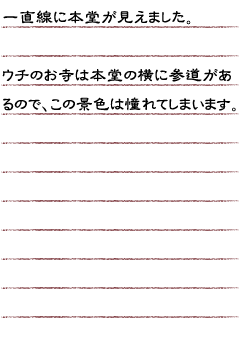 一直線に本堂が見えました。
ウチのお寺は本堂の横に参道があ
るので、この景色は憧れてしまいます。